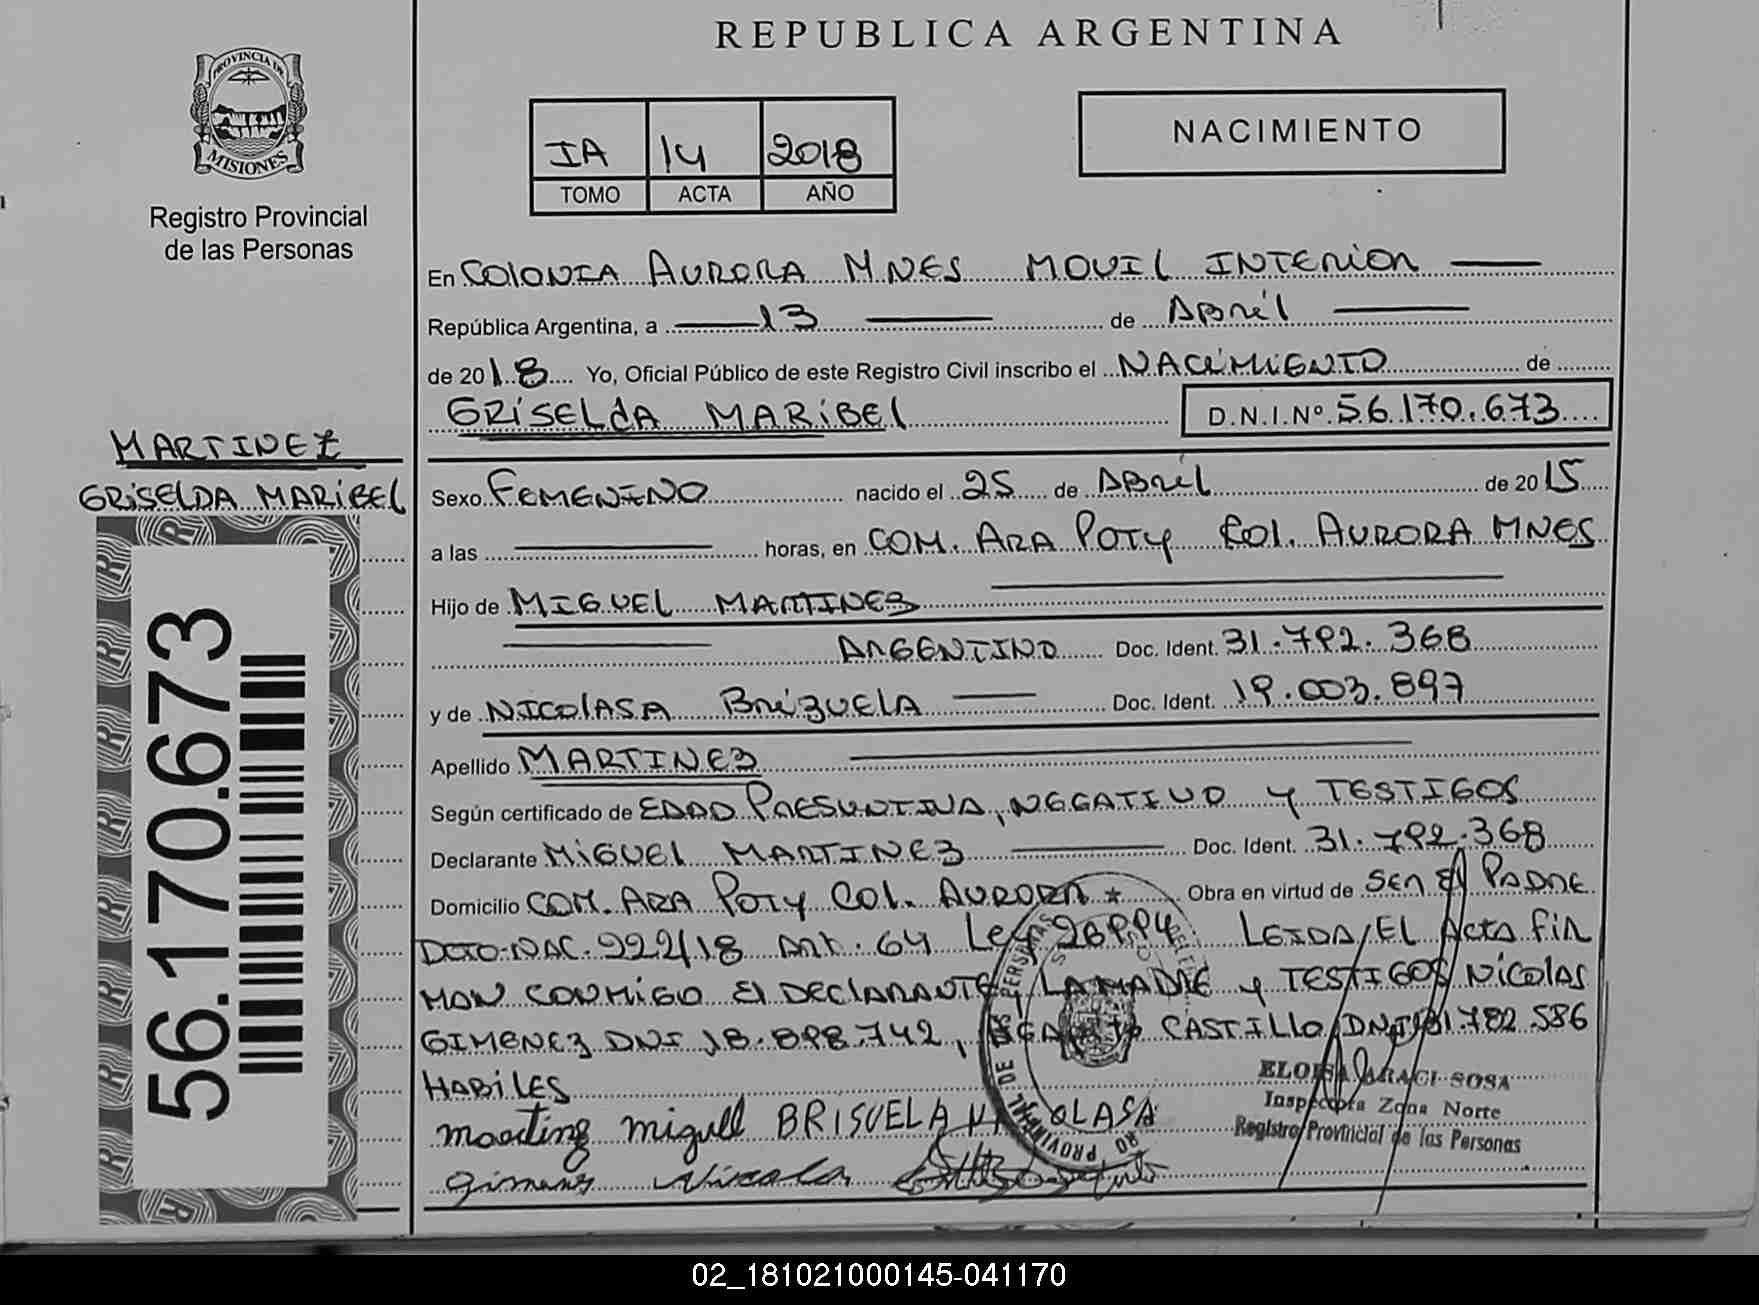 REPUBLICA ARGENTINA
PROVINCIA DE
MISIONES
Registro Provincial
de las Personas
IA 14 2018
TOMO ACTA AÑO
NACIMIENTO
En COLONIA AURORA MNES MOVIL INTERIOR
República Argentina, a 13 de ABRIL
de 2018 Yo, Oficial Público de este Registro Civil inscribo el NACIMIENTO de
GRISELDA MARIBEL D.N.I.Nº 56.170.673
MARTINEZ
GRISELDA MARIBEL
56.170.673
Sexo FEMENINO nacido el 25 de ABRIL de 2015
a las horas, en COM. ARA POTY COL. AURORA MNES
Hijo de MIGUEL MARTINEZ
ARGENTINO Doc. Ident. 31.792.368
y de NICOLASA BRIZUELA Doc. Ident. 19.003.897
Apellido MARTINEZ
Según certificado de EDAD PRESUNTIVA, NEGATIVO Y TESTIGOS
Declarante MIGUEL MARTINEZ Doc. Ident. 31.792.368
Domicilio COM. ARA POTY COL. AURORA Obra en virtud de SER EL PADRE
DCTO. NAC. 222/18 ART. 64 Ley 26994 LEIDA EL ACTA FIR
MAN CONMIGO EL DECLARANTE, LA MADRE Y TESTIGOS NICOLAS
GIMENEZ DNI 18.898.742, CASTILLO DNI 31.782.586
HABILES
PROVINCIAL DE
ELOISA ARACI SOSA
Inspectora Zona Norte
Registro Provincial de las Personas
migуell BRISUELA NICOLASA
02_181021000145-041170